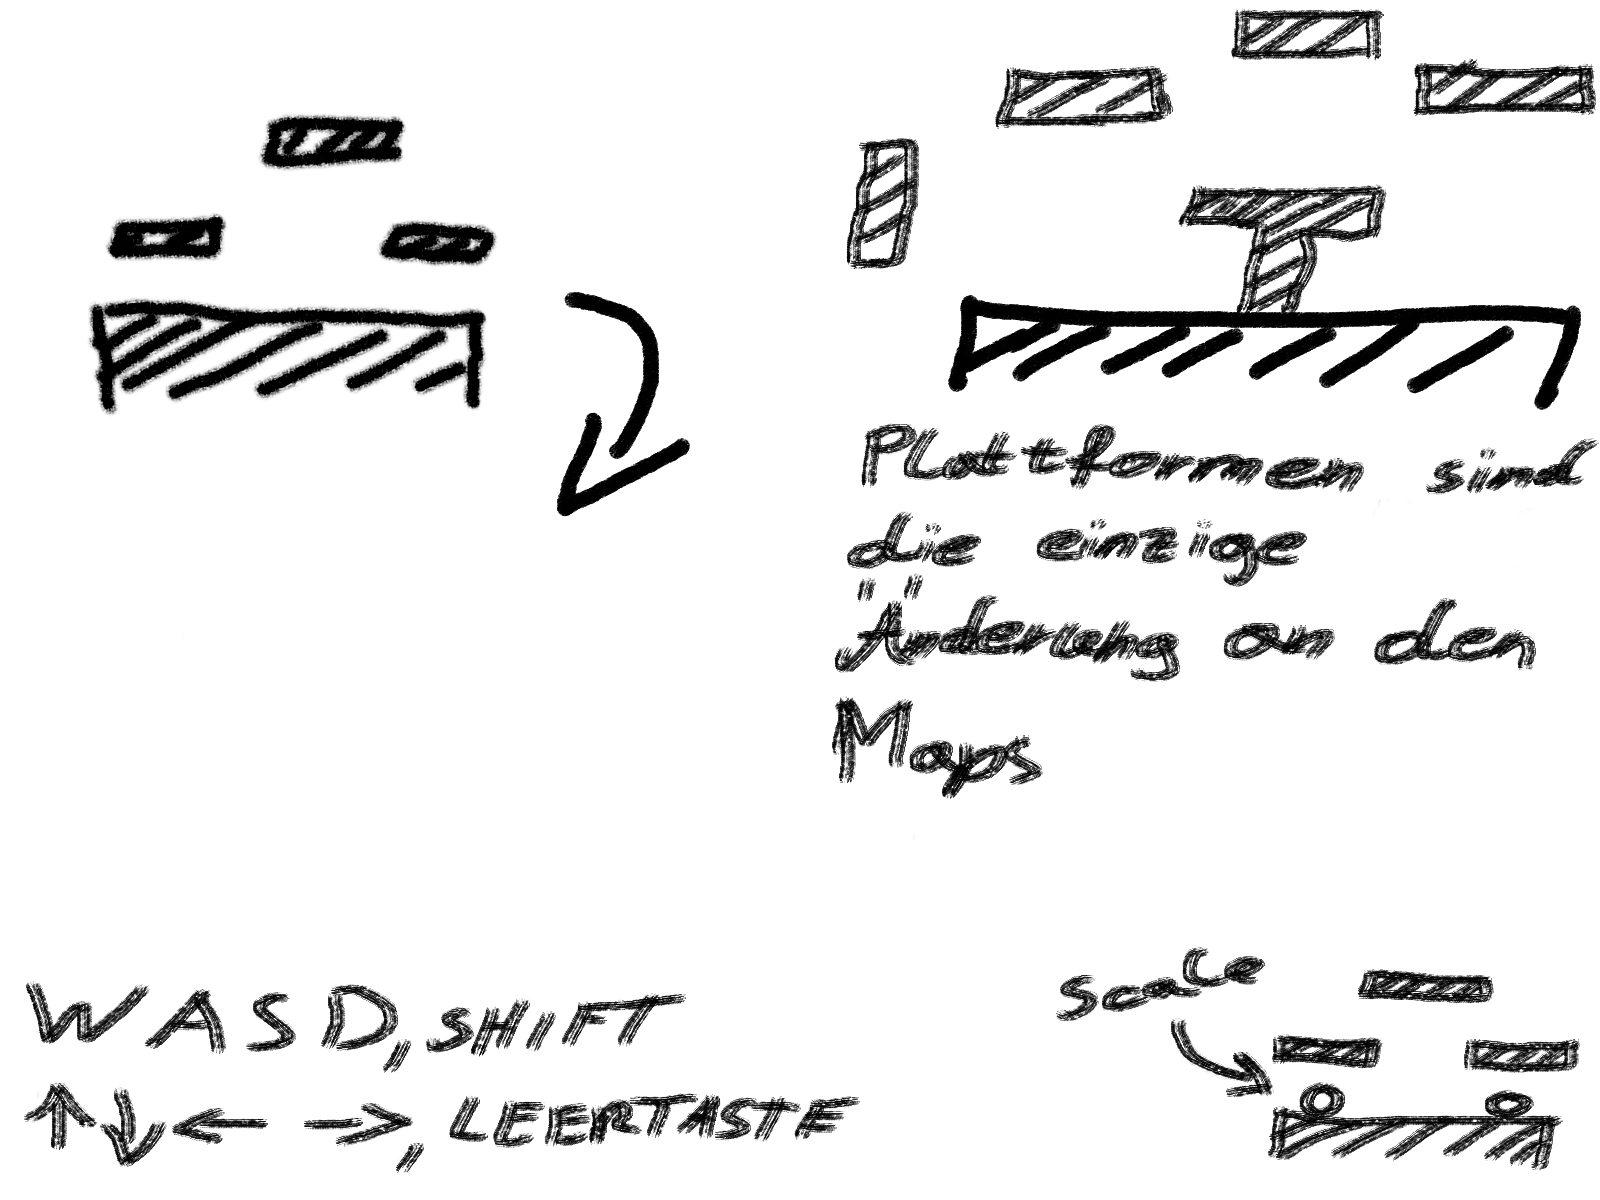 Plattformen sind
die einzige
Änderung an den
Maps
scale
WASD, SHIFT
↑ ↓ ← →, LEERTASTE